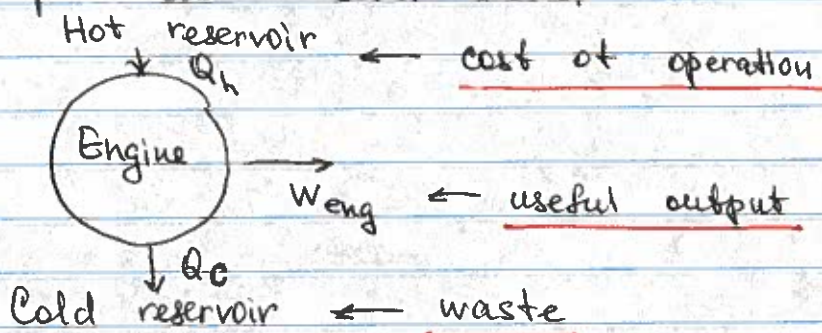 Hot reservoir
Qh ← cost of operation
Engine
Weng ← useful output
Qc
Cold reservoir ← waste